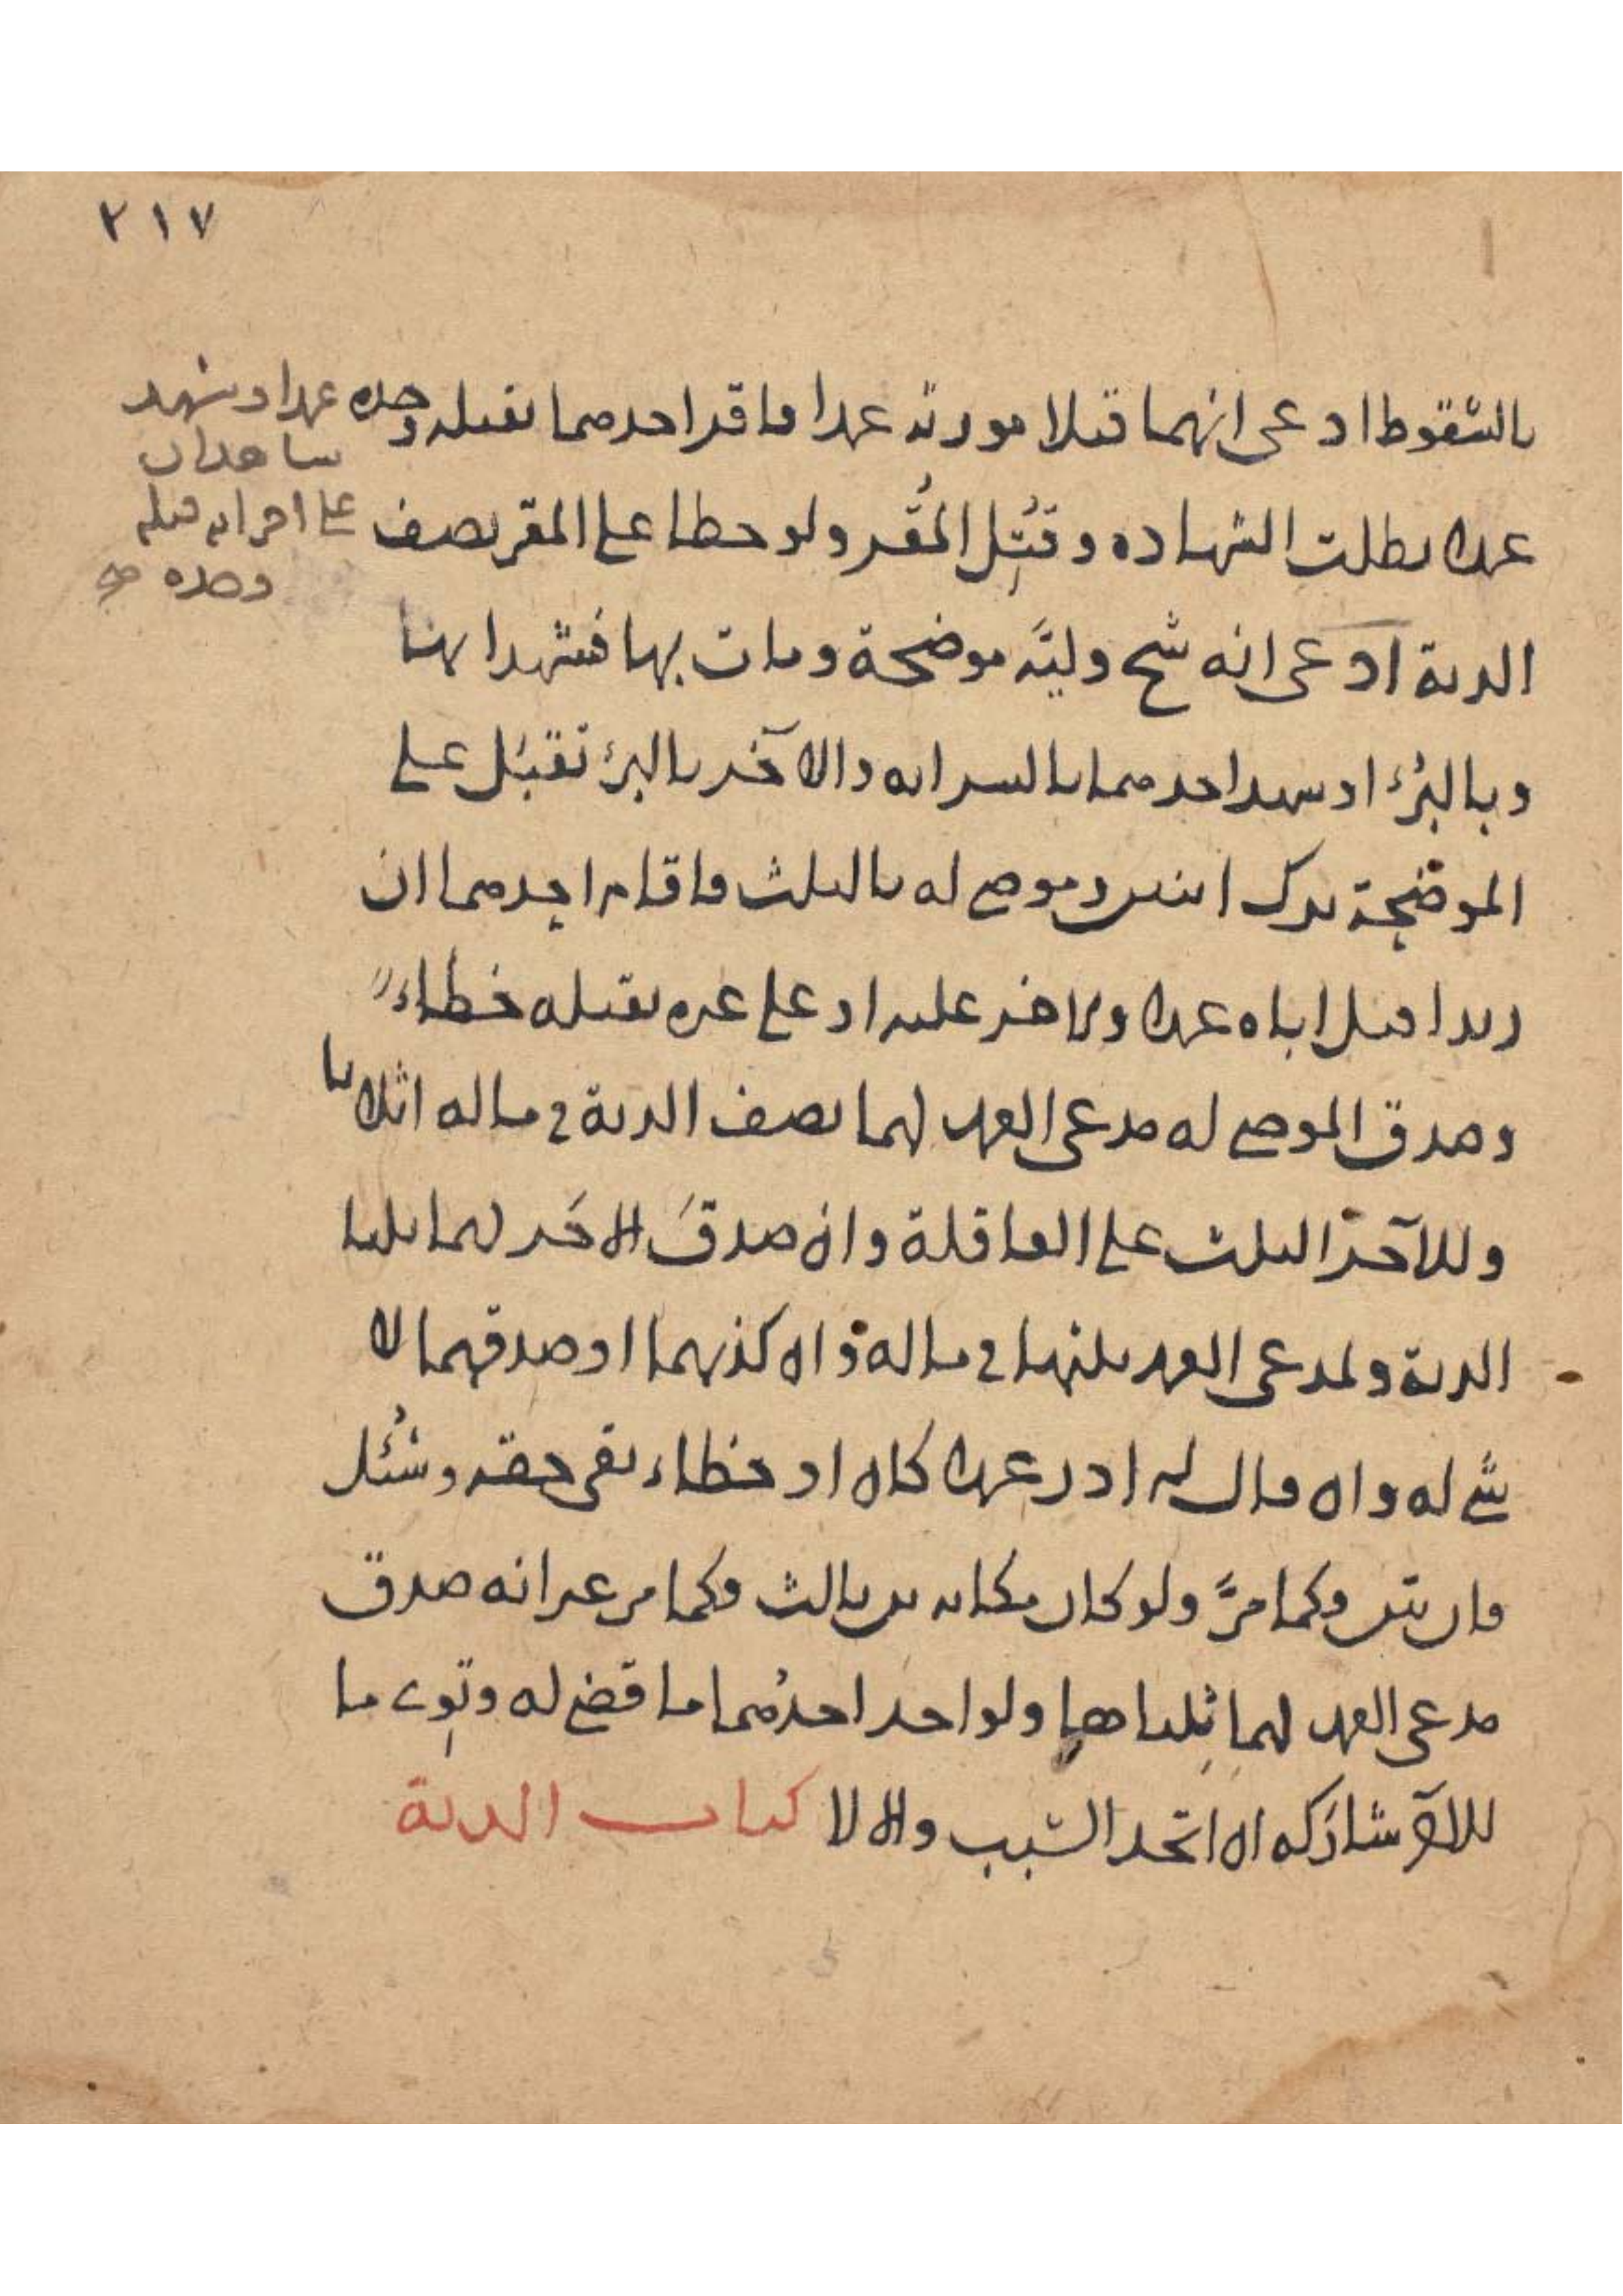 ٢١٧
بالسقوط ادعى انهما قتلا مورثه عمدا فاقر احدهما بقتله وحده
عمدا وشهد
شاهدان
على اخر انه قتله
وحده صح
عمدا بطلت الشهاده وقُتِل المُقر ولو خطا على المقر نصف
الدية ادعى انه شج وليَّه موضحة ومات بها فشهدا بها
وبالبُرْء او شهد احدهما بالسراية والاخر بالبرء تقبَل على
الموضحة ترك ابنين وموصى له بالثلث فاقام احدهما ان
زيدا قتل اباه عمدا والاخر عليه او على غيره بقتله خطاءً
وصدق الموصى له مدعى العمد لهما نصف الدية في ماله اثلاثا
وللآخر الثلث على العاقلة وان صدقَ الاخَر لهما ثلثا
الدية ولمدعى العمد ثلثها في ماله وان كذبهما او صدقهما لا
شئ له وان قال لم ادر عمدا كان او خطاء بقى حقه وسُئل
فان بين فكما مرَّ ولو كان مكانه ابن ثالث فكما مر غير انه صدق
مدعى العمد لهما ثلثاها ولو اخذ احدُهما ما قضى له وتَوِى ما
للآخر شارَكه ان اتحد السبب والا لا كتاب الدية